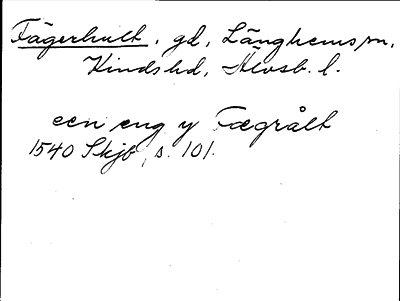 Fägerhult, gd, Länghems sn,
Kinds hd, Älvsb. l.
een eng y Fægrålt
1540 Skjb, s. 101.